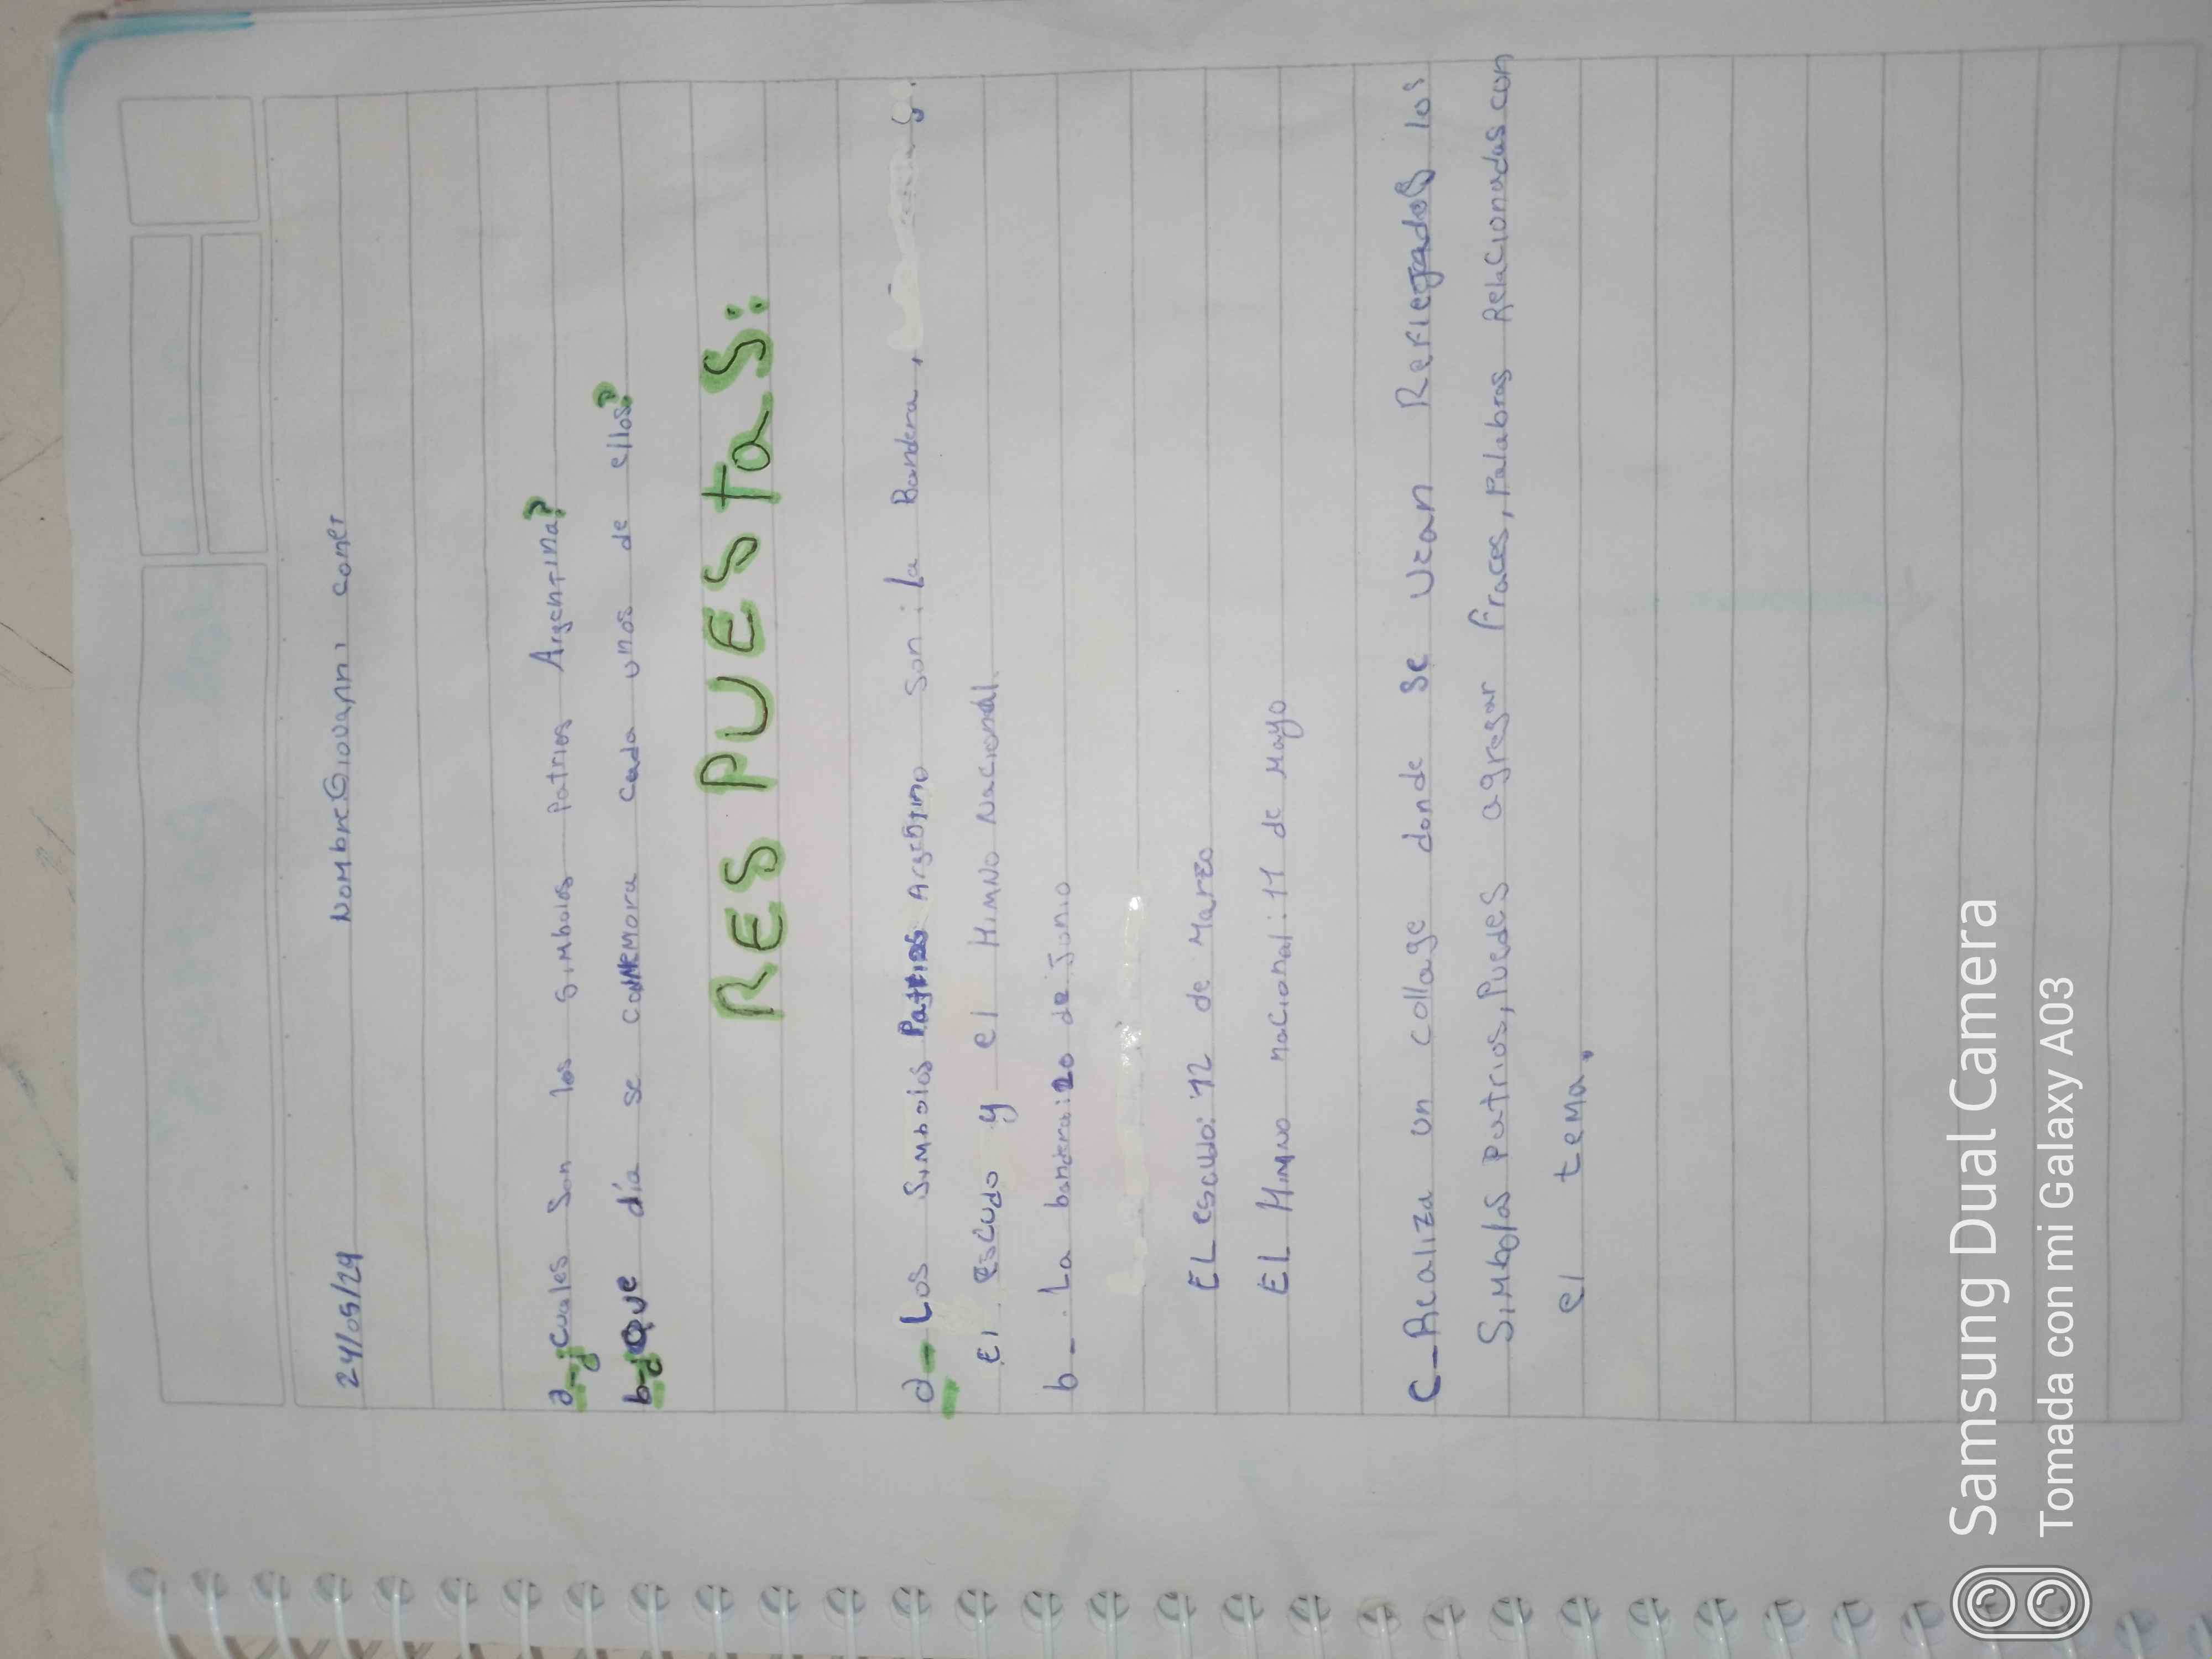 24/05/24 Nombre:Giovanni comer
a-¿cuales Son los simbolos Patrios Argentina?
b-¿Que día se conmemora cada unos de ellos?
RESPUEStaS:
a- Los Simbolos Patrios Argentino son: la Bandera,
El escudo y el Himno Nacional
b-. La bandera:20 de Junio
EL escudo:12 de Marzo
El Himno nacional:11 de Mayo
C-Realiza un collage donde se vean Reflejados los
Simbolos Patrios, Puedes agregar fraces, Palabras Relacionadas con
el tema.
Samsung Dual Camera
Tomada con mi Galaxy A03